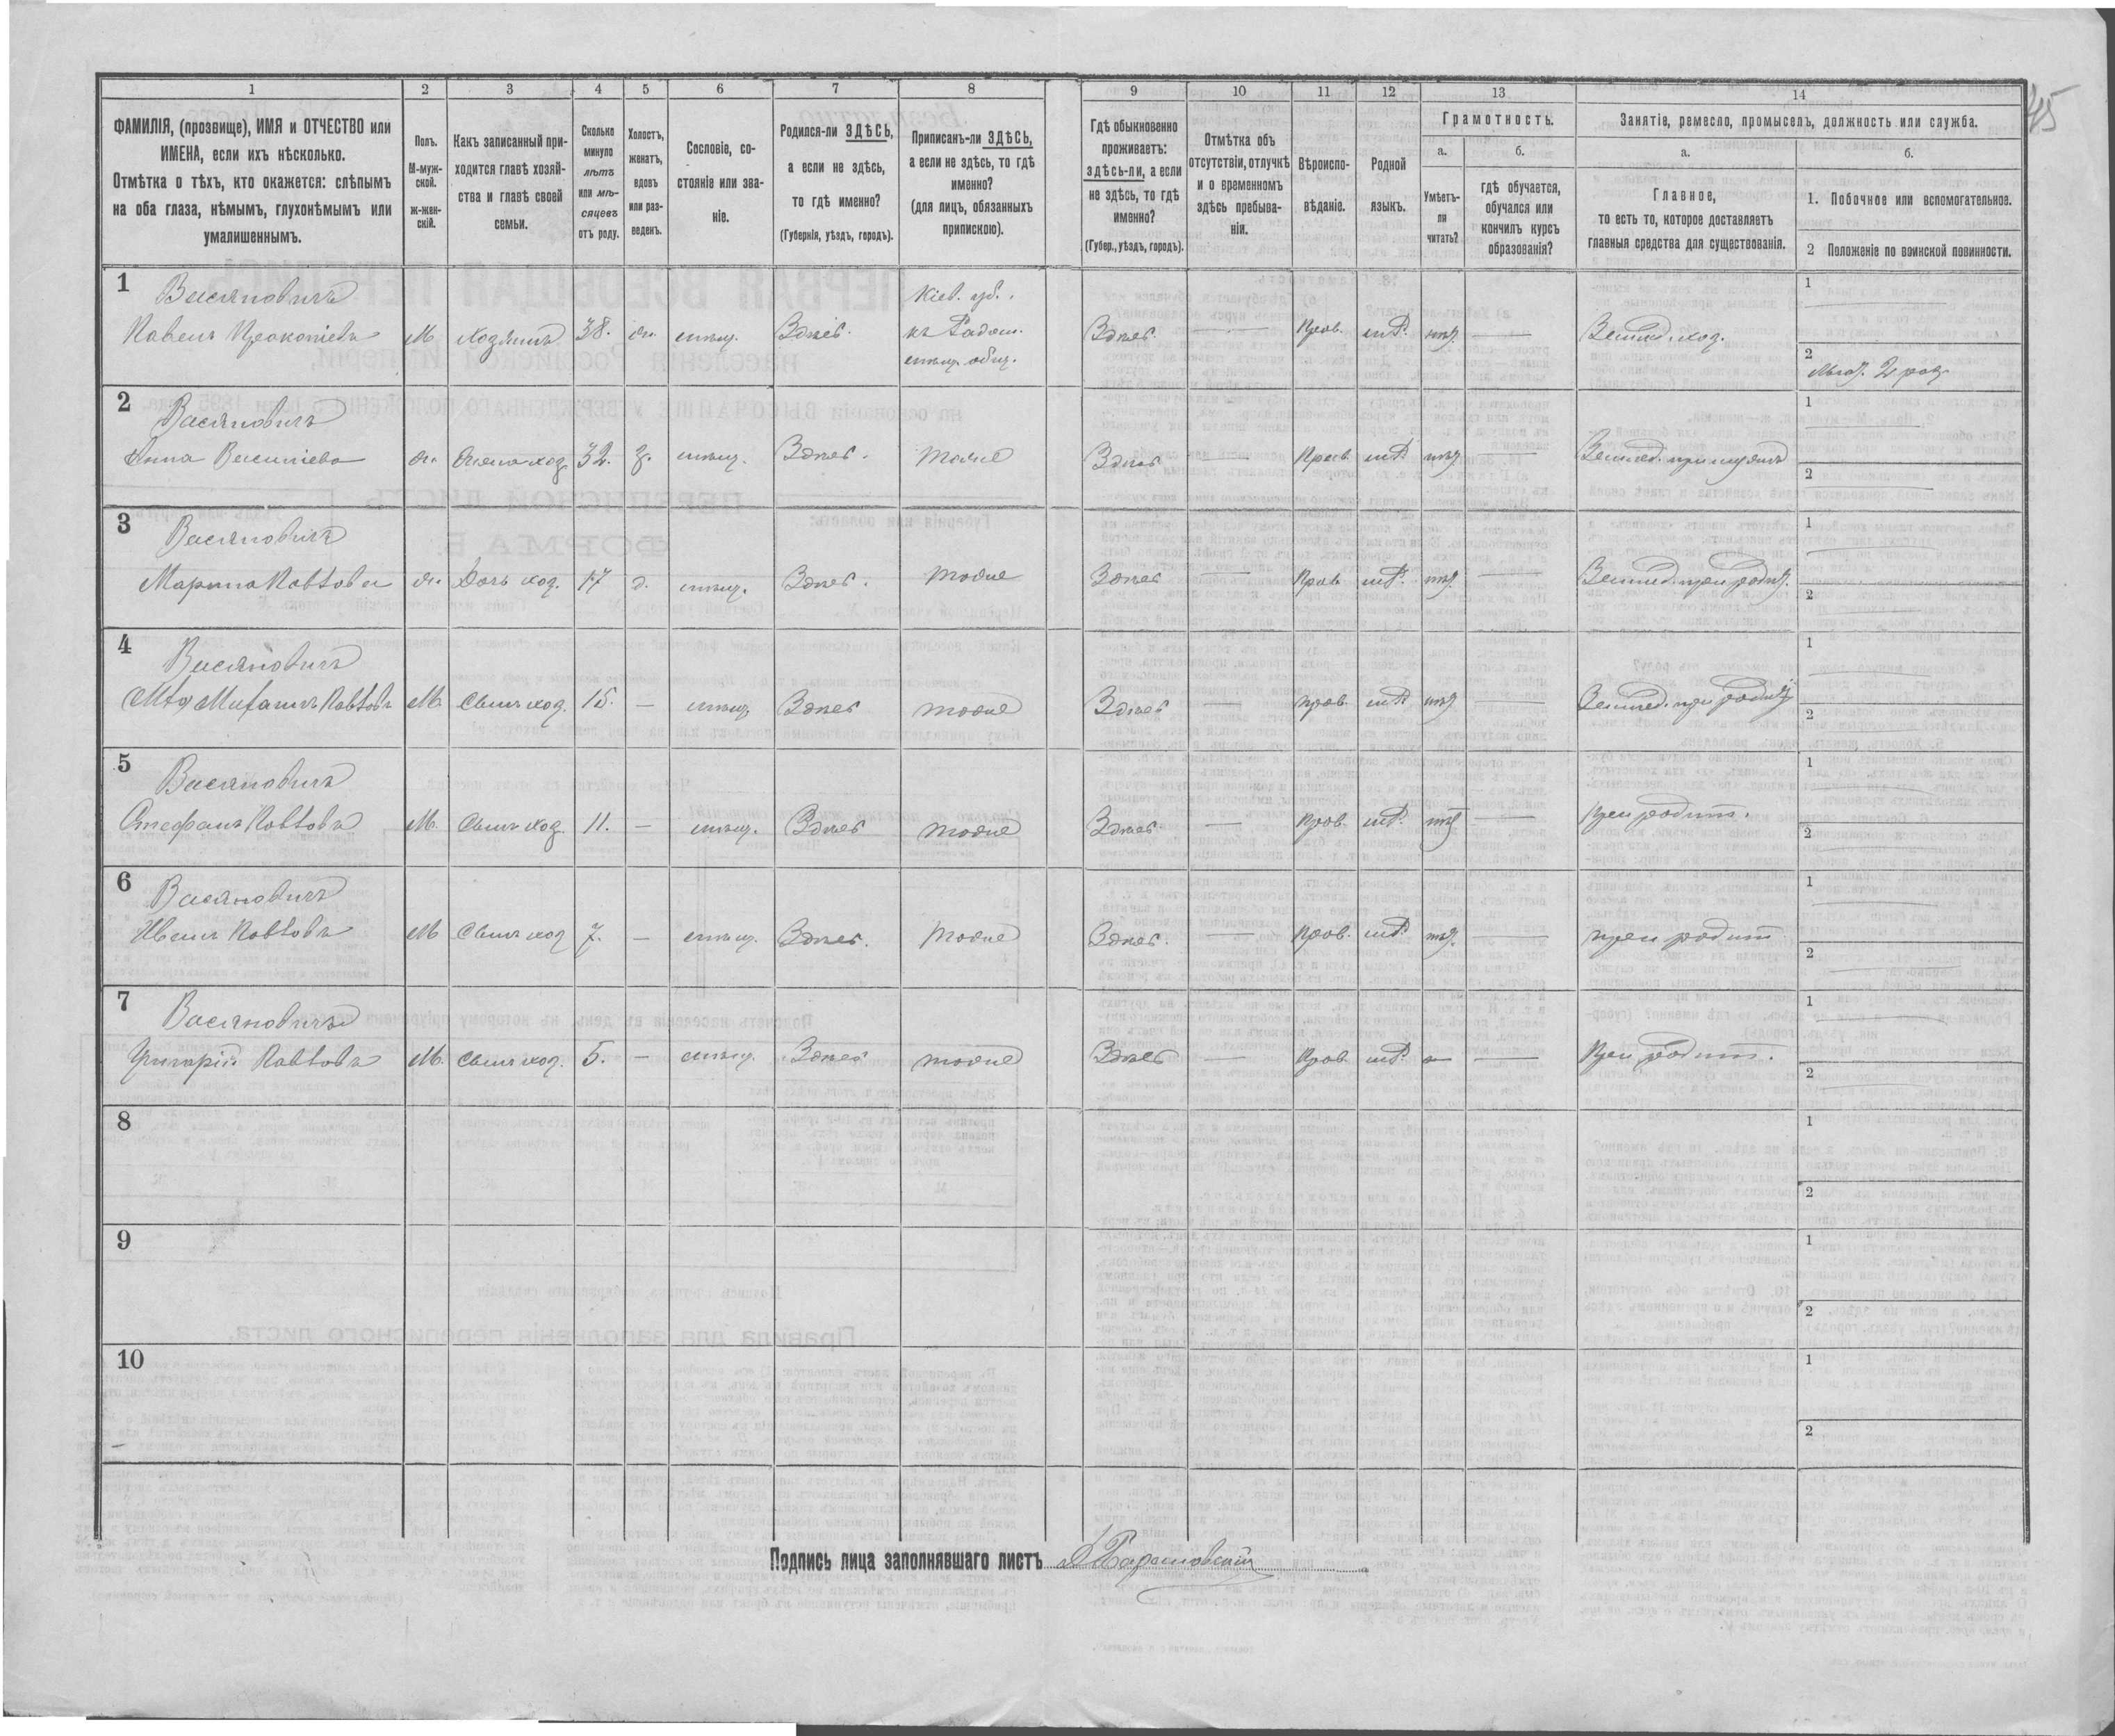 45
1 2 3 4 5 6 7 8 9 10 11 12 13 14
ФАМИЛІЯ, (прозвище), ИМЯ и ОТЧЕСТВО или
ИМЕНА, если ихъ нѣсколько.
Отмѣтка о тѣхъ, кто окажется: слѣпымъ
на оба глаза, нѣмымъ, глухонѣмымъ или
умалишеннымъ.
Полъ.
М-муж-
ской.
ж-жен-
скій.
Какъ записанный при-
ходится главѣ хозяй-
ства и главѣ своей
семьи.
Сколько
минуло
лѣтъ
или мѣ-
сяцевъ
отъ роду.
Холостъ,
женатъ,
вдовъ
или раз-
веденъ.
Сословіе, со-
стояніе или зва-
ніе.
Родился-ли ЗДѢСЬ,
а если не здѣсь,
то гдѣ именно?
(Губернія, уѣздъ, городъ).
Приписанъ-ли ЗДѢСЬ,
а если не здѣсь, то гдѣ
именно?
(для лицъ, обязанныхъ
припискою).
Гдѣ обыкновенно
проживаетъ:
здѣсь-ли, а если
не здѣсь, то гдѣ
именно?
(Губер., уѣздъ, городъ).
Отмѣтка объ
отсутствіи, отлучкѣ
и о временномъ
здѣсь пребыва-
ніи.
Вѣроиспо-
вѣданіе.
Родной
языкъ.
Грамотность.
а.
Умѣетъ-
ли
читать?
б.
гдѣ обучается,
обучался или
кончилъ курсъ
образованія?
Занятіе, ремесло, промыселъ, должность или служба.
а.
Главное,
то есть то, которое доставляетъ
главныя средства для существованія.
б.
1. Побочное или вспомогательное.
2 Положеніе по воинской повинности.
1
Васяновичъ
Кіев. губ.,
1
Павелъ Прокопіевъ М. Хозяинъ 38. ж. мѣщ. Здѣсь. къ Радом. Здѣсь. — Прав. нѣт. — Землед. хоз.
мѣщ. общ.
2
2 раз.
2
Васяновичъ
1
Анна Василіева ж. Жена хоз. 32. з. мѣщ. Здѣсь. тоже Здѣсь — Прав. нѣт. —
2
3
Васяновичъ
1
Марина Павлова ж. Дочь хоз. 17 д. мѣщ. Здѣсь. тоже Здѣсь — Прав. нѣт. — Землед. при родит.
2
4
Васяновичъ
1
Михаилъ Павловъ М. Сынъ хоз. 15. — мѣщ. Здѣсь тоже Здѣсь — прав. нѣт. — Землед. при родит.
2
5
Васяновичъ
1
Стефанъ Павловъ М. Сынъ хоз. 11. — мѣщ. Здѣсь тоже Здѣсь — Прав. нѣт — при родит.
2
6
Васяновичъ
1
Иванъ Павловъ М Сынъ хоз 7. — мѣщ. Здѣсь. тоже Здѣсь. — Прав. нѣт. — при родит
2
7
Васяновичъ
1
Григорій Павловъ М. Сынъ хоз. 5. — мѣщ. Здѣсь тоже Здѣсь — Прав. — — при родит.
2
8
1
2
9
1
2
10
1
2
Подпись лица заполнявшаго листъ